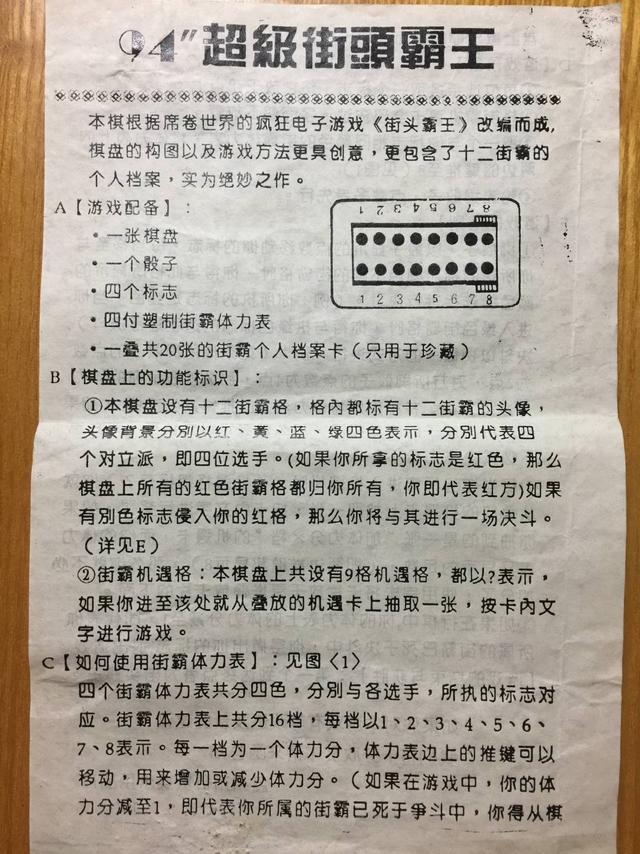 94"超級街頭霸王
本棋根据席卷世界的疯狂电子游戏《街头霸王》改编而成,
棋盘的构图以及游戏方法更具创意，更包含了十二街霸的
个人档案，实为绝妙之作。
A【游戏配备】：
·一张棋盘
·一个骰子
·四个标志
·四付塑制街霸体力表
·一叠共20张的街霸个人档案卡（只用于珍藏）
1 2 3 4 5 6 7 8
1 2 3 4 5 6 7 8
B【棋盘上的功能标识】：
①本棋盘设有十二街霸格，格内都标有十二街霸的头像，
头像背景分别以红、黄、蓝、绿四色表示，分别代表四
个对立派，即四位选手。(如果你所拿的标志是红色，那么
棋盘上所有的红色街霸格都归你所有，你即代表红方)如果
有别色标志侵入你的红格，那么你将与其进行一场决斗。
（详见E）
②街霸机遇格：本棋盘上共设有9格机遇格，都以?表示，
如果你进至该处就从叠放的机遇卡上抽取一张，按卡内文
字进行游戏。
C【如何使用街霸体力表】：见图〈1〉
四个街霸体力表共分四色，分别与各选手，所执的标志对
应。街霸体力表上共分16档，每档以1、2、3、4、5、6、
7、8表示。每一档为一个体力分，体力表边上的推键可以
移动，用来增加或减少体力分。（如果在游戏中，你的体
力分减至1，即代表你所属的街霸已死于争斗中，你得从棋